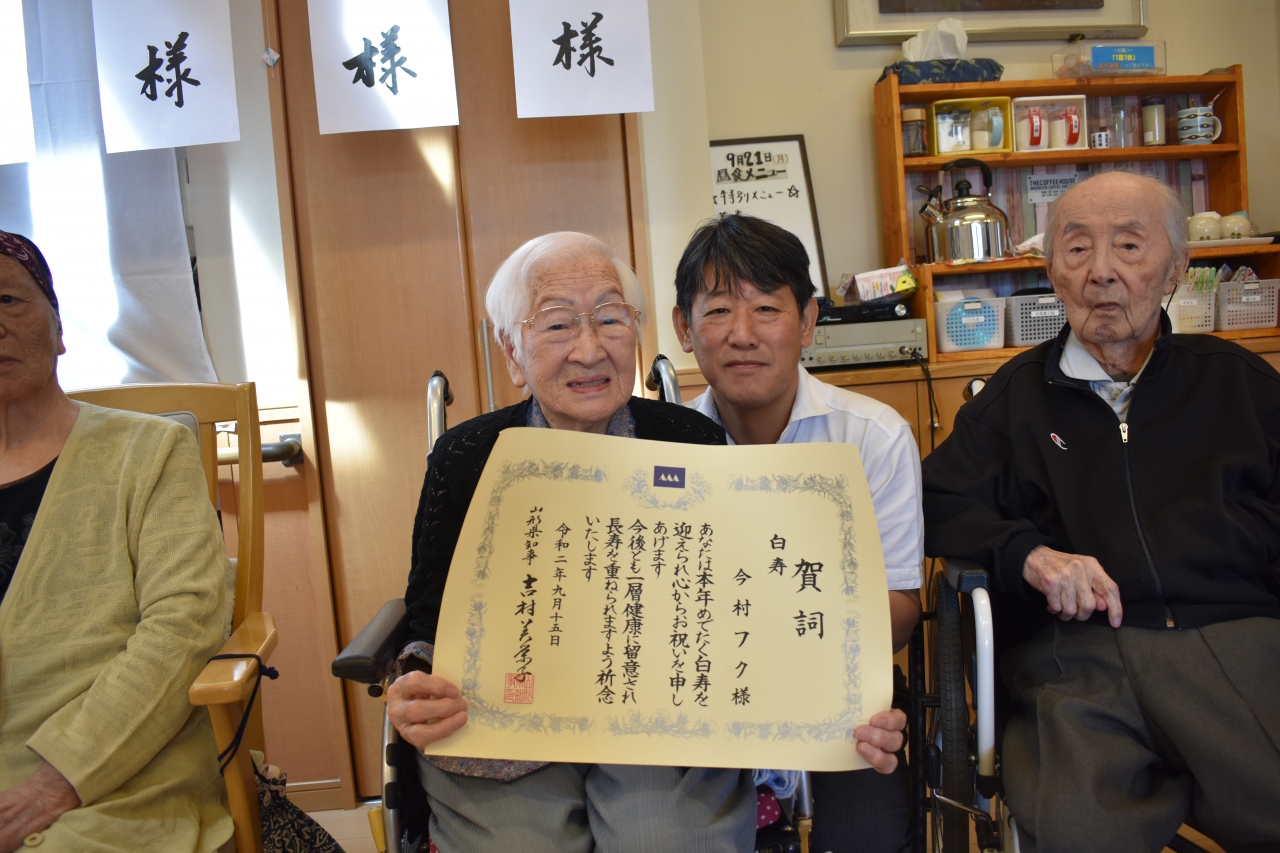 様
様
様
9月21日(月)
昼食メニュー
特別メニュー☆
THE COFFEE HOUSE
賀詞
今村フク様
白寿
あなたは本年めでたく白寿を
迎えられ心からお祝いを申し
あげます
今後とも一層健康に留意され
長寿を重ねられますよう祈念
いたします
令和二年九月十五日
山形県知事 吉村美栄子